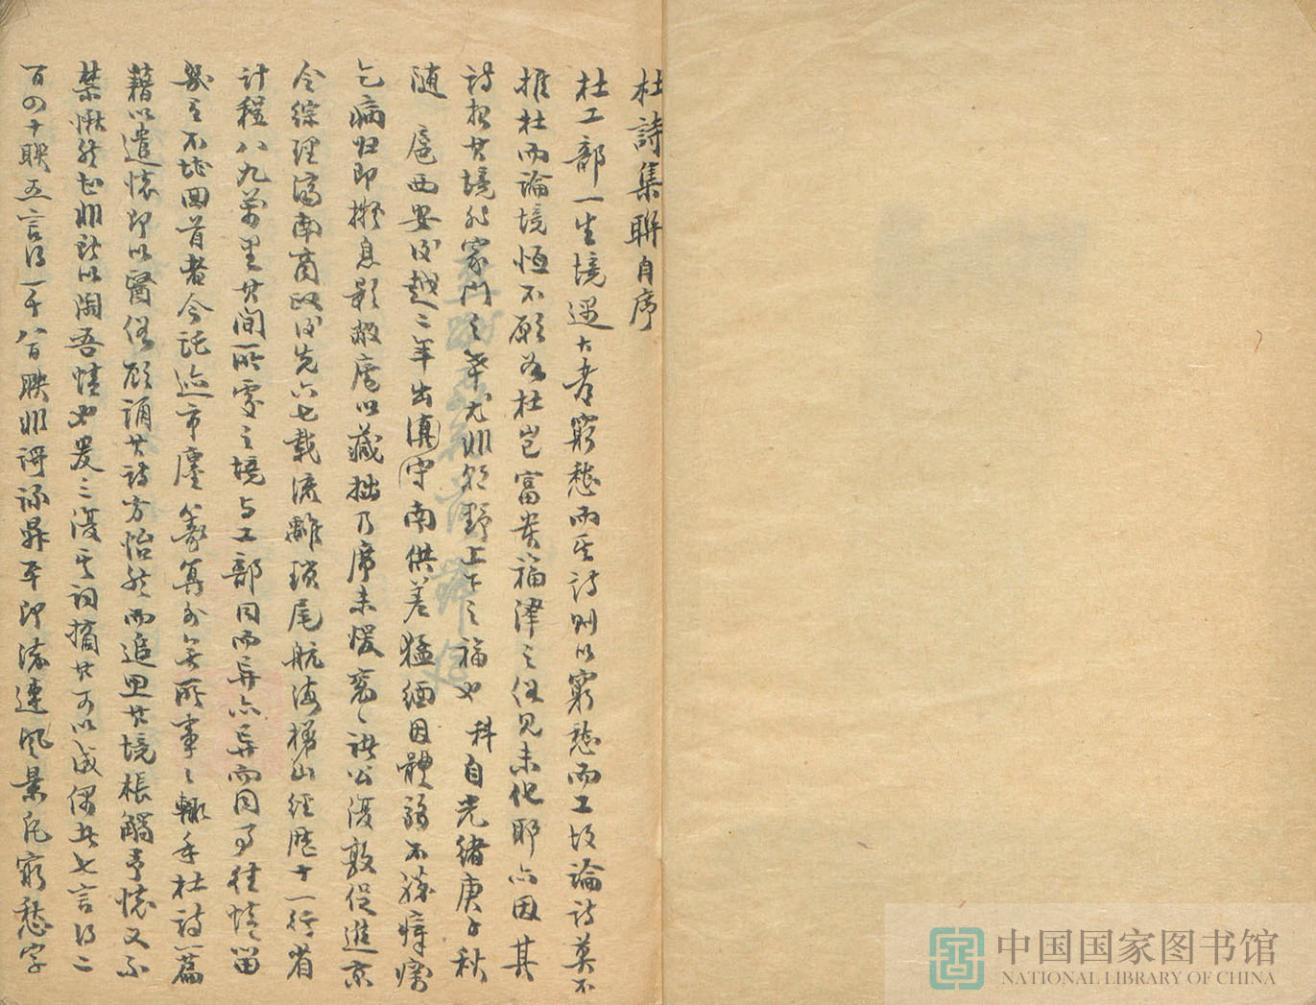 杜詩集聯自序
杜工部一生境遇大都窮愁而其詩則以窮愁而工故論詩莫不
推杜而論境恒不願為杜豈富貴福澤之俗見未化耶亦因其
詩推其境非家門之幸尤非朝野上下之福也 科自光緒庚子秋
随 扈西安後越二年出滇守南供差猛緬因體弱不勝瘴癘
乞病归即擬息影敝廬以藏拙乃席未煖袁、諸公復敦促進京
令綜理滬南商政後先六七載流離瑣尾航海梯山經歷十一行省
計程八九萬里其间所處之境与工部同而异亦异而同乃往情留
幾至不堪回首者今託迹市廛籌算外無所事、輙手杜詩一篇
藉以遣懷即以醫俗願誦其詩方怡然而追思其境棖觸予懷又不
禁愀然也非敢以淘吾情也爰三復其詞摘其可以成偶者七言得二
百四十聯五言得一千八百聯非謂流連風景凡窮愁字
中国国家图书馆
NATIONAL LIBRARY OF CHINA